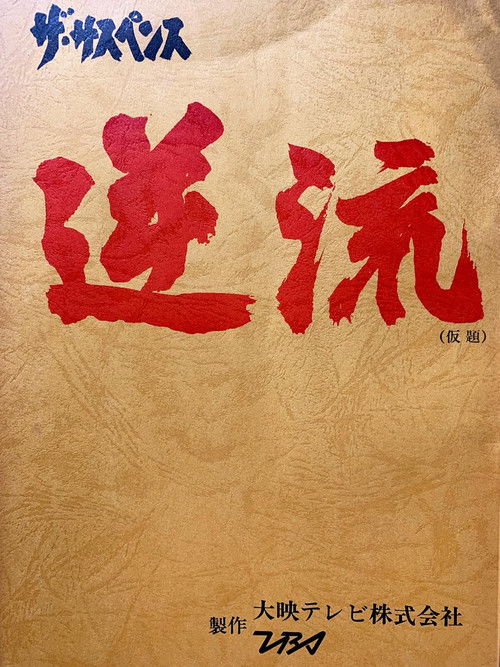 ザ・サスペンス
逆流
(仮題)
製作 大映テレビ株式会社
TBS